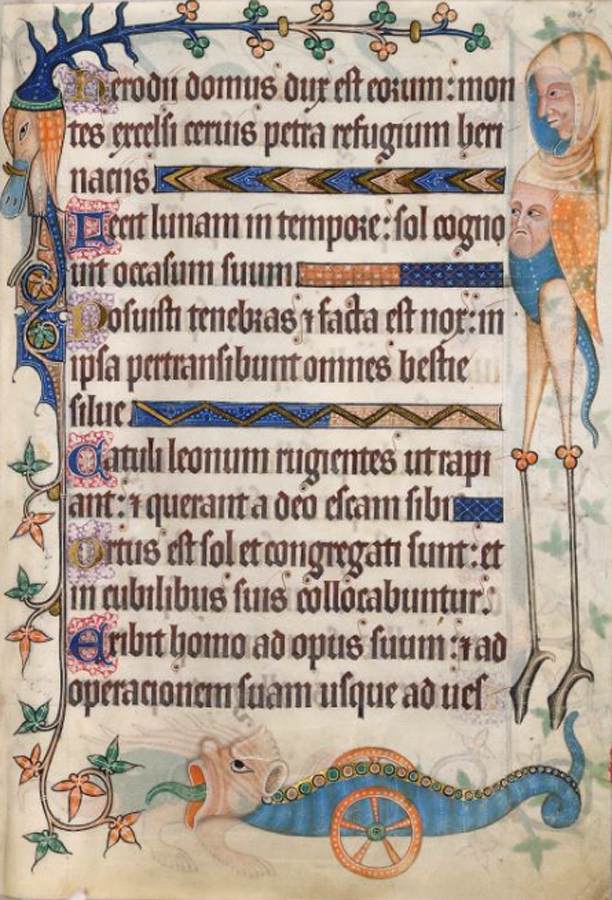 Herodii domus dux est eorum: mon
tes excelsi ceruis petra refugium heri
naciis
Fecit lunam in tempore: sol cogno
uit occasum suum
Posuisti tenebras ⁊ facta est nox: in
ipsa pertransibunt omnes bestie
silue
Catuli leonum rugientes ut rapi
ant: ⁊ querant a deo escam sibi
Ortus est sol et congregati sunt: et
in cubilibus suis collocabuntur.
Exibit homo ad opus suum: ⁊ ad
operacionem suam usque ad ues